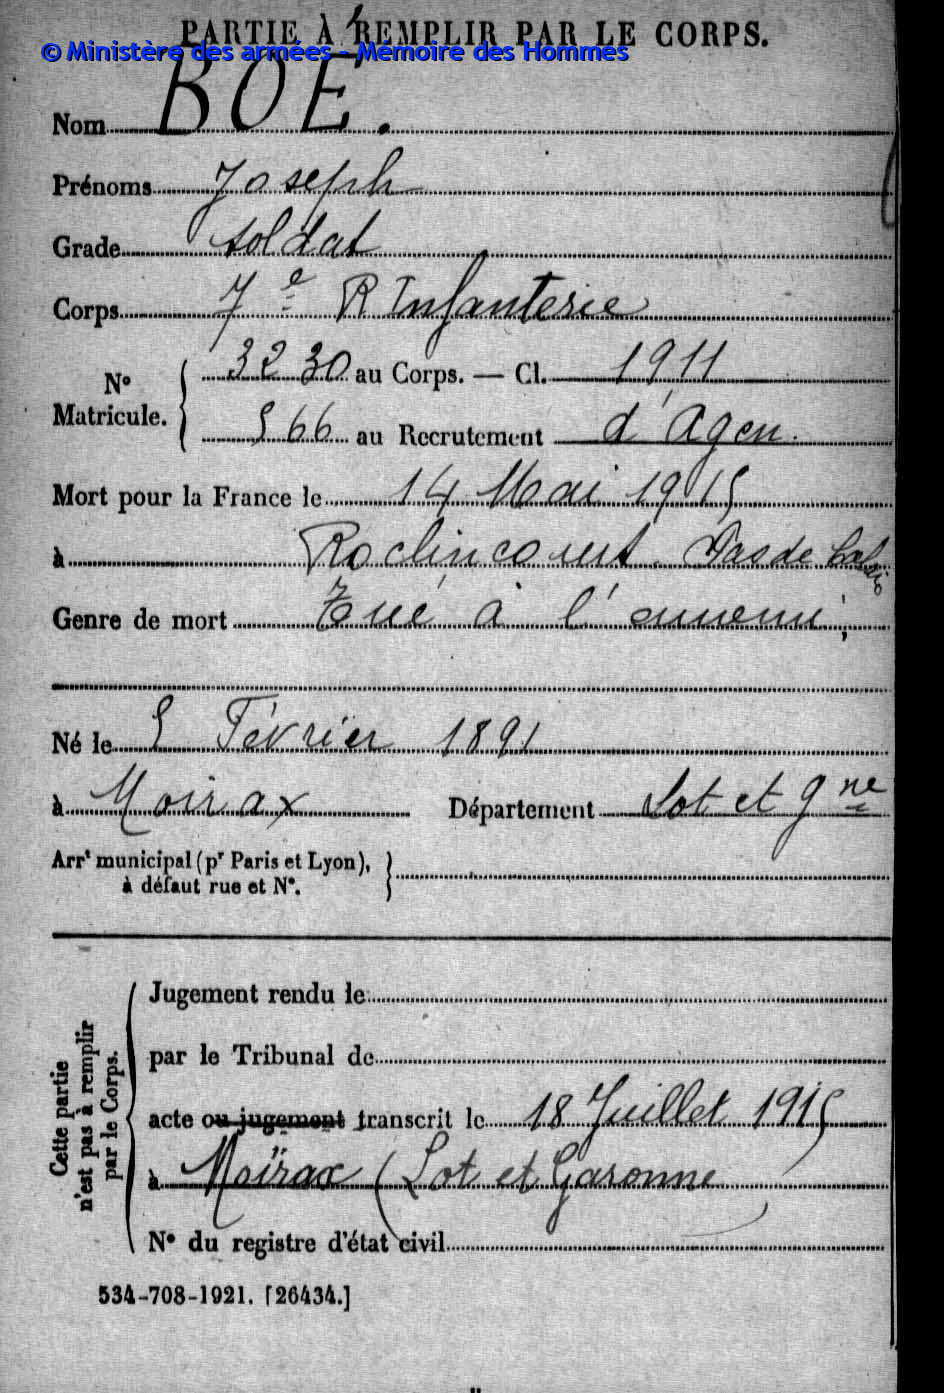 PARTIE À REMPLIR PAR LE CORPS.
© Ministère des armées - Mémoire des Hommes
Nom BOÉ.
Prénoms Joseph
Grade soldat
Corps 7e R Infanterie
N° Matricule. { 3230 au Corps. — Cl. 1911
566 au Recrutement d'Agen.
Mort pour la France le 14 Mai 1915
à Roclincourt. Pas de Calais
Genre de mort Tué à l'ennemi
Né le 5 Février 1891
à Moirax Département Lot et Gne
Arrt municipal (pr Paris et Lyon),
à défaut rue et N°.
Cette partie n'est pas à remplir par le Corps.
Jugement rendu le
par le Tribunal de
acte ou jugement transcrit le 18 Juillet 1915
à Moïrax (Lot et Garonne
N° du registre d'état civil
534-708-1921. [26434.]